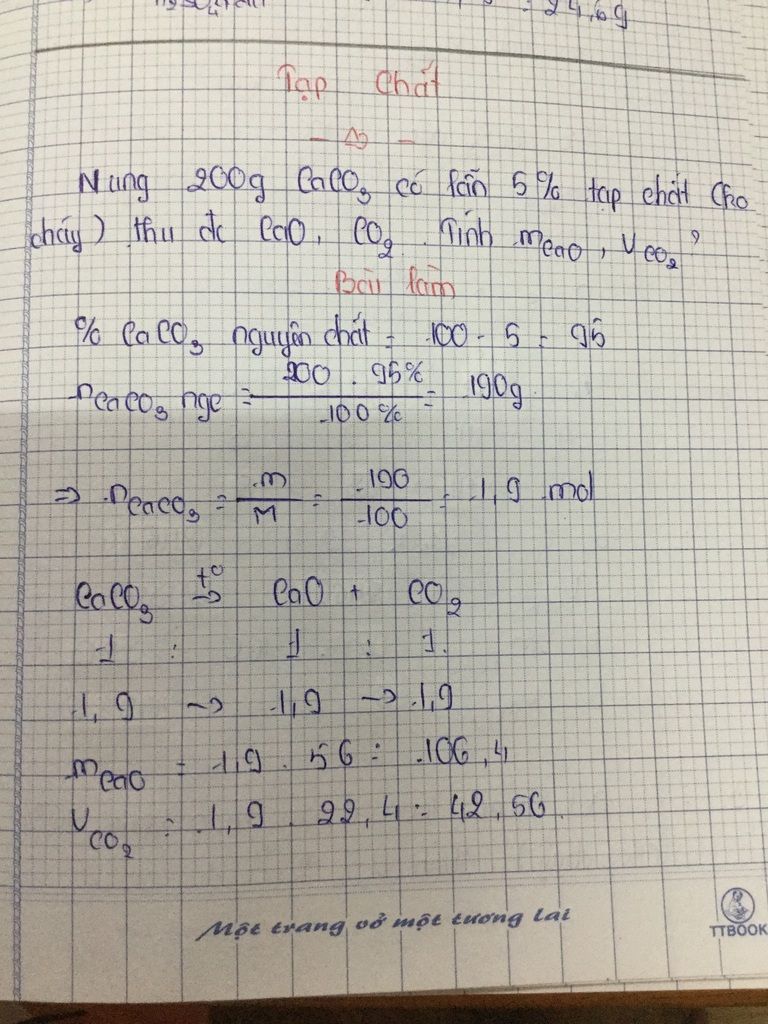 = 24,6g
Tạp chất
Nung 200g CaCO3 có lẫn 5% tạp chất (ko
cháy) thu đc CaO, CO2. Tính mCaO, VCO2?
Bài làm
% CaCO3 nguyên chất = 100 - 5 = 95
mCaCO3 ngc = 200 . 95% / 100% = 190g
=> nCaCO3 = m / M = 190 / 100 = 1,9 mol
CaCO3 t° → CaO + CO2
1 : 1 : 1
1,9 → 1,9 → 1,9
mCaO = 1,9 . 56 = 106,4
VCO2 = 1,9 . 22,4 = 42,56
Một trang vở một tương lai
TTBOOK